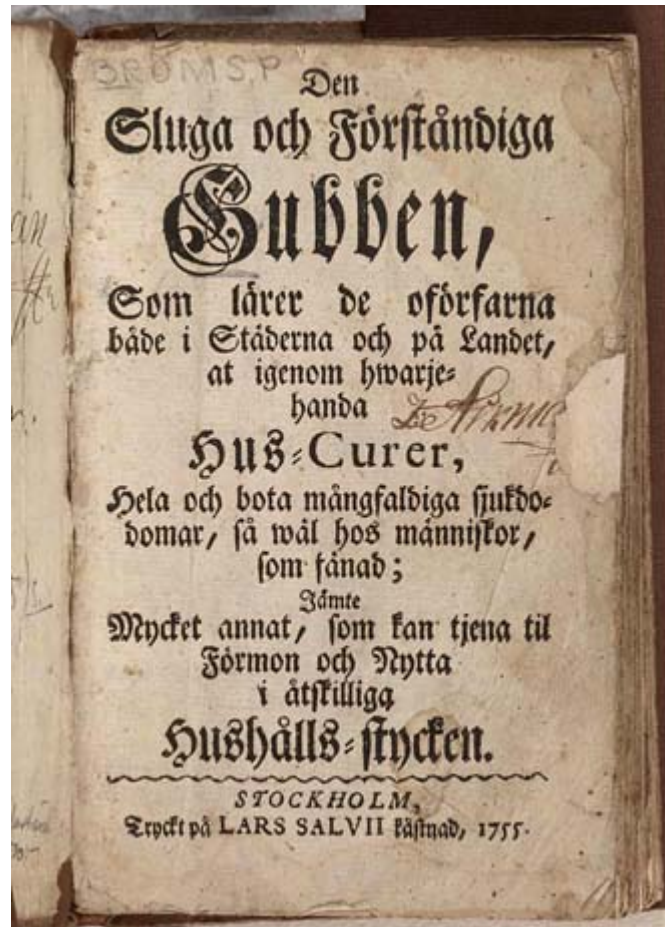 BROMS, P
Den
Sluga och Förståndiga
Gubben,
Som lärer de oförfarna
både i Städerna och på Landet,
at igenom hwarje-
handa
Hus-Curer,
Hela och bota mångfaldiga sjukdo-
domar, så wäl hos människor,
som fänad;
Jämte
Mycket annat, som kan tjena til
Förmon och Nytta
i åtskilliga
Hushålls-stycken.
STOCKHOLM,
Tryckt på LARS SALVII kåstnad, 1755.